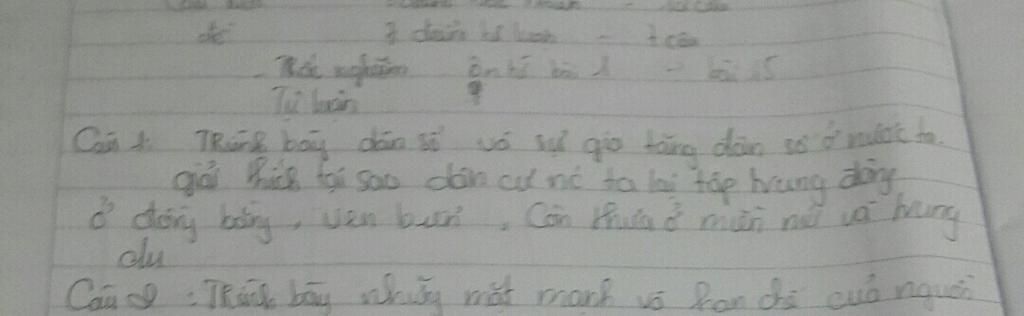 đề
- Trắc nghiệm ôn từ bài 1 - bài 15
Tự luận
Câu 1: Trình bày dân số và sự gia tăng dân số ở nước ta.
giải thích tại sao dân cư nc ta lại tập trung đông
ở đồng bằng, ven biển, Còn thưa ở miền núi và trung
du
Câu 2: Trình bày những mặt mạnh và hạn chế của người